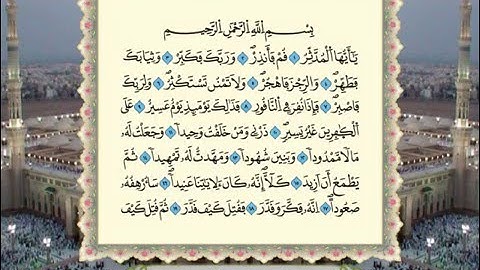 بِسْمِ اللَّهِ الرَّحْمَٰنِ الرَّحِيمِ
يَا أَيُّهَا الْمُدَّثِّرُ ۝١ قُمْ فَأَنْذِرْ ۝٢ وَرَبَّكَ فَكَبِّرْ ۝٣ وَثِيَابَكَ
فَطَهِّرْ ۝٤ وَالرُّجْزَ فَاهْجُرْ ۝٥ وَلَا تَمْنُنْ تَسْتَكْثِرُ ۝٦ وَلِرَبِّكَ
فَاصْبِرْ ۝٧ فَإِذَا نُقِرَ فِي النَّاقُورِ ۝٨ فَذَٰلِكَ يَوْمَئِذٍ يَوْمٌ عَسِيرٌ ۝٩ عَلَى
الْكَافِرِينَ غَيْرُ يَسِيرٍ ۝١٠ ذَرْنِي وَمَنْ خَلَقْتُ وَحِيدًا ۝١١ وَجَعَلْتُ لَهُ
مَالًا مَمْدُودًا ۝١٢ وَبَنِينَ شُهُودًا ۝١٣ وَمَهَّدْتُ لَهُ تَمْهِيدًا ۝١٤ ثُمَّ
يَطْمَعُ أَنْ أَزِيدَ ۝١٥ كَلَّا إِنَّهُ كَانَ لِآيَاتِنَا عَنِيدًا ۝١٦ سَأُرْهِقُهُ
صَعُودًا ۝١٧ إِنَّهُ فَكَّرَ وَقَدَّرَ ۝١٨ فَقُتِلَ كَيْفَ قَدَّرَ ۝١٩ ثُمَّ قُتِلَ كَيْفَ